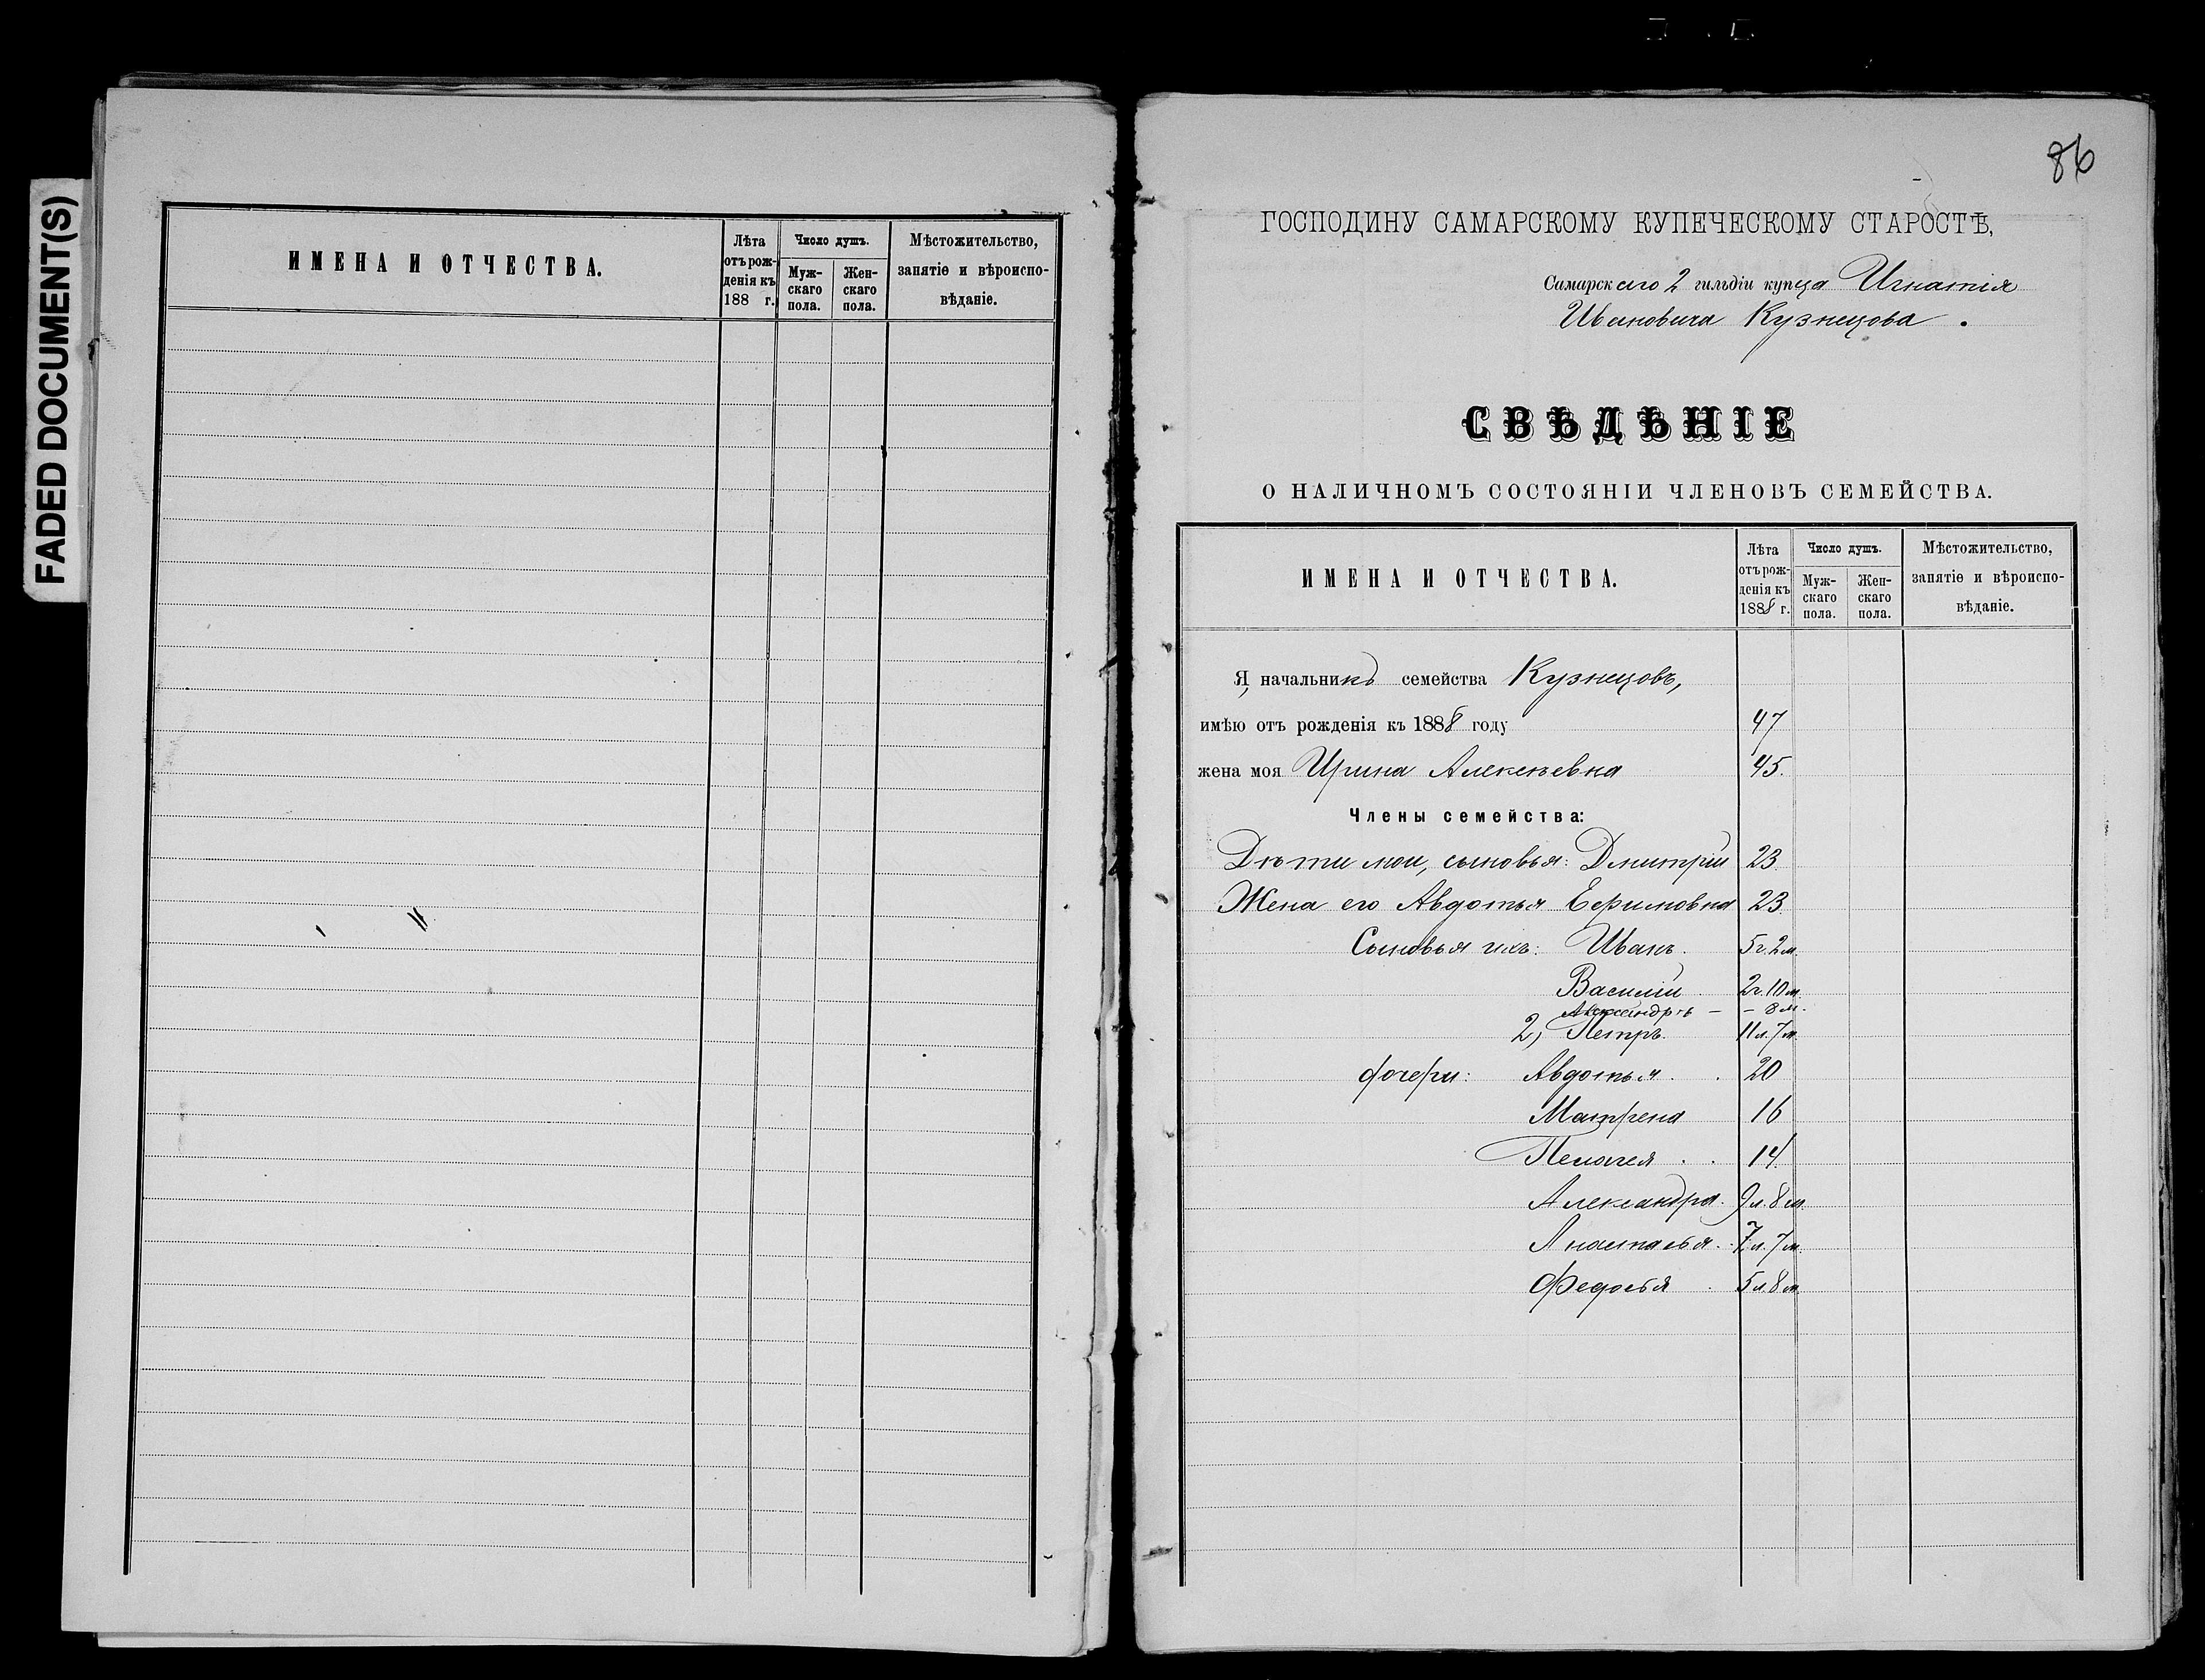 FADED DOCUMENT(S)
ИМЕНА И ОТЧЕСТВА.
Лѣта
отъ рож-
денія къ
188 г.
Число душъ.
Муж-
скаго
пола.
Жен-
скаго
пола.
Мѣстожительство,
занятіе и вѣроиспо-
вѣданіе.
86
ГОСПОДИНУ САМАРСКОМУ КУПЕЧЕСКОМУ СТАРОСТѢ,
Самарскаго 2 гильдіи купца Игнатія
Ивановича Кузнецова.
СВѢДѢНІЕ
О НАЛИЧНОМЪ СОСТОЯНІИ ЧЛЕНОВЪ СЕМЕЙСТВА.
ИМЕНА И ОТЧЕСТВА.
Лѣта
отъ рож-
денія къ
1888 г.
Число душъ.
Муж-
скаго
пола.
Жен-
скаго
пола.
Мѣстожительство,
занятіе и вѣроиспо-
вѣданіе.
Я, начальникъ семейства Кузнецовъ,
имѣю отъ рожденія къ 1888 году 47
жена моя Ирина Алексѣевна 45.
Члены семейства:
Дѣти мои, сыновья: Дмитрій 23
Жена его Авдотья Ефимовна 23
Сыновья ихъ: Иванъ. 5 г. 2 м.
Василій 2 г. 10 м.
Александръ — — 8 м.
2, Петръ. 11 л. 7 м.
дочери: Авдотья . . 20
Матрена 16
Пелагея . . 14.
Александра. 9 л. 8 м.
Анастасья. 7 л. 7 м.
Федосья . 5 л. 8 м.